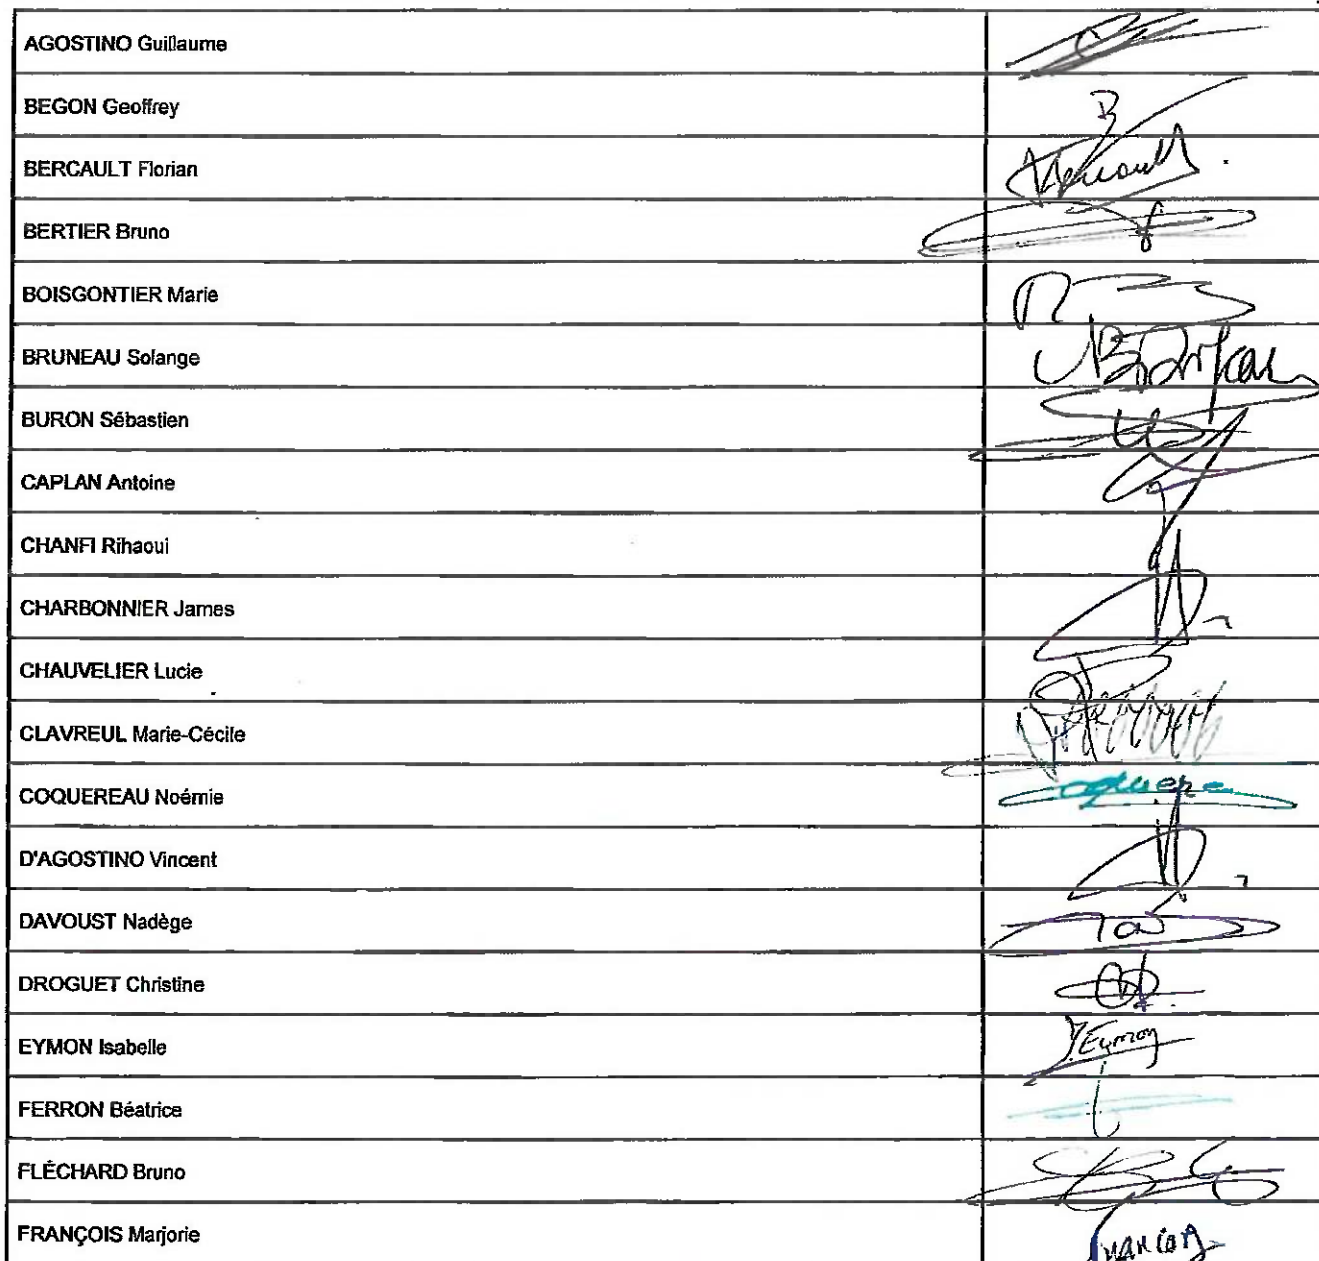 AGOSTINO Guillaume
BEGON Geoffrey
BERCAULT Florian
BERTIER Bruno
BOISGONTIER Marie
BRUNEAU Solange
BURON Sébastien
CAPLAN Antoine
CHANFI Rihaoui
CHARBONNIER James
CHAUVELIER Lucie
CLAVREUL Marie-Cécile
COQUEREAU Noémie
D'AGOSTINO Vincent
DAVOUST Nadège
DROGUET Christine
EYMON Isabelle
Eymon
FERRON Béatrice
FLÉCHARD Bruno
FRANÇOIS Marjorie